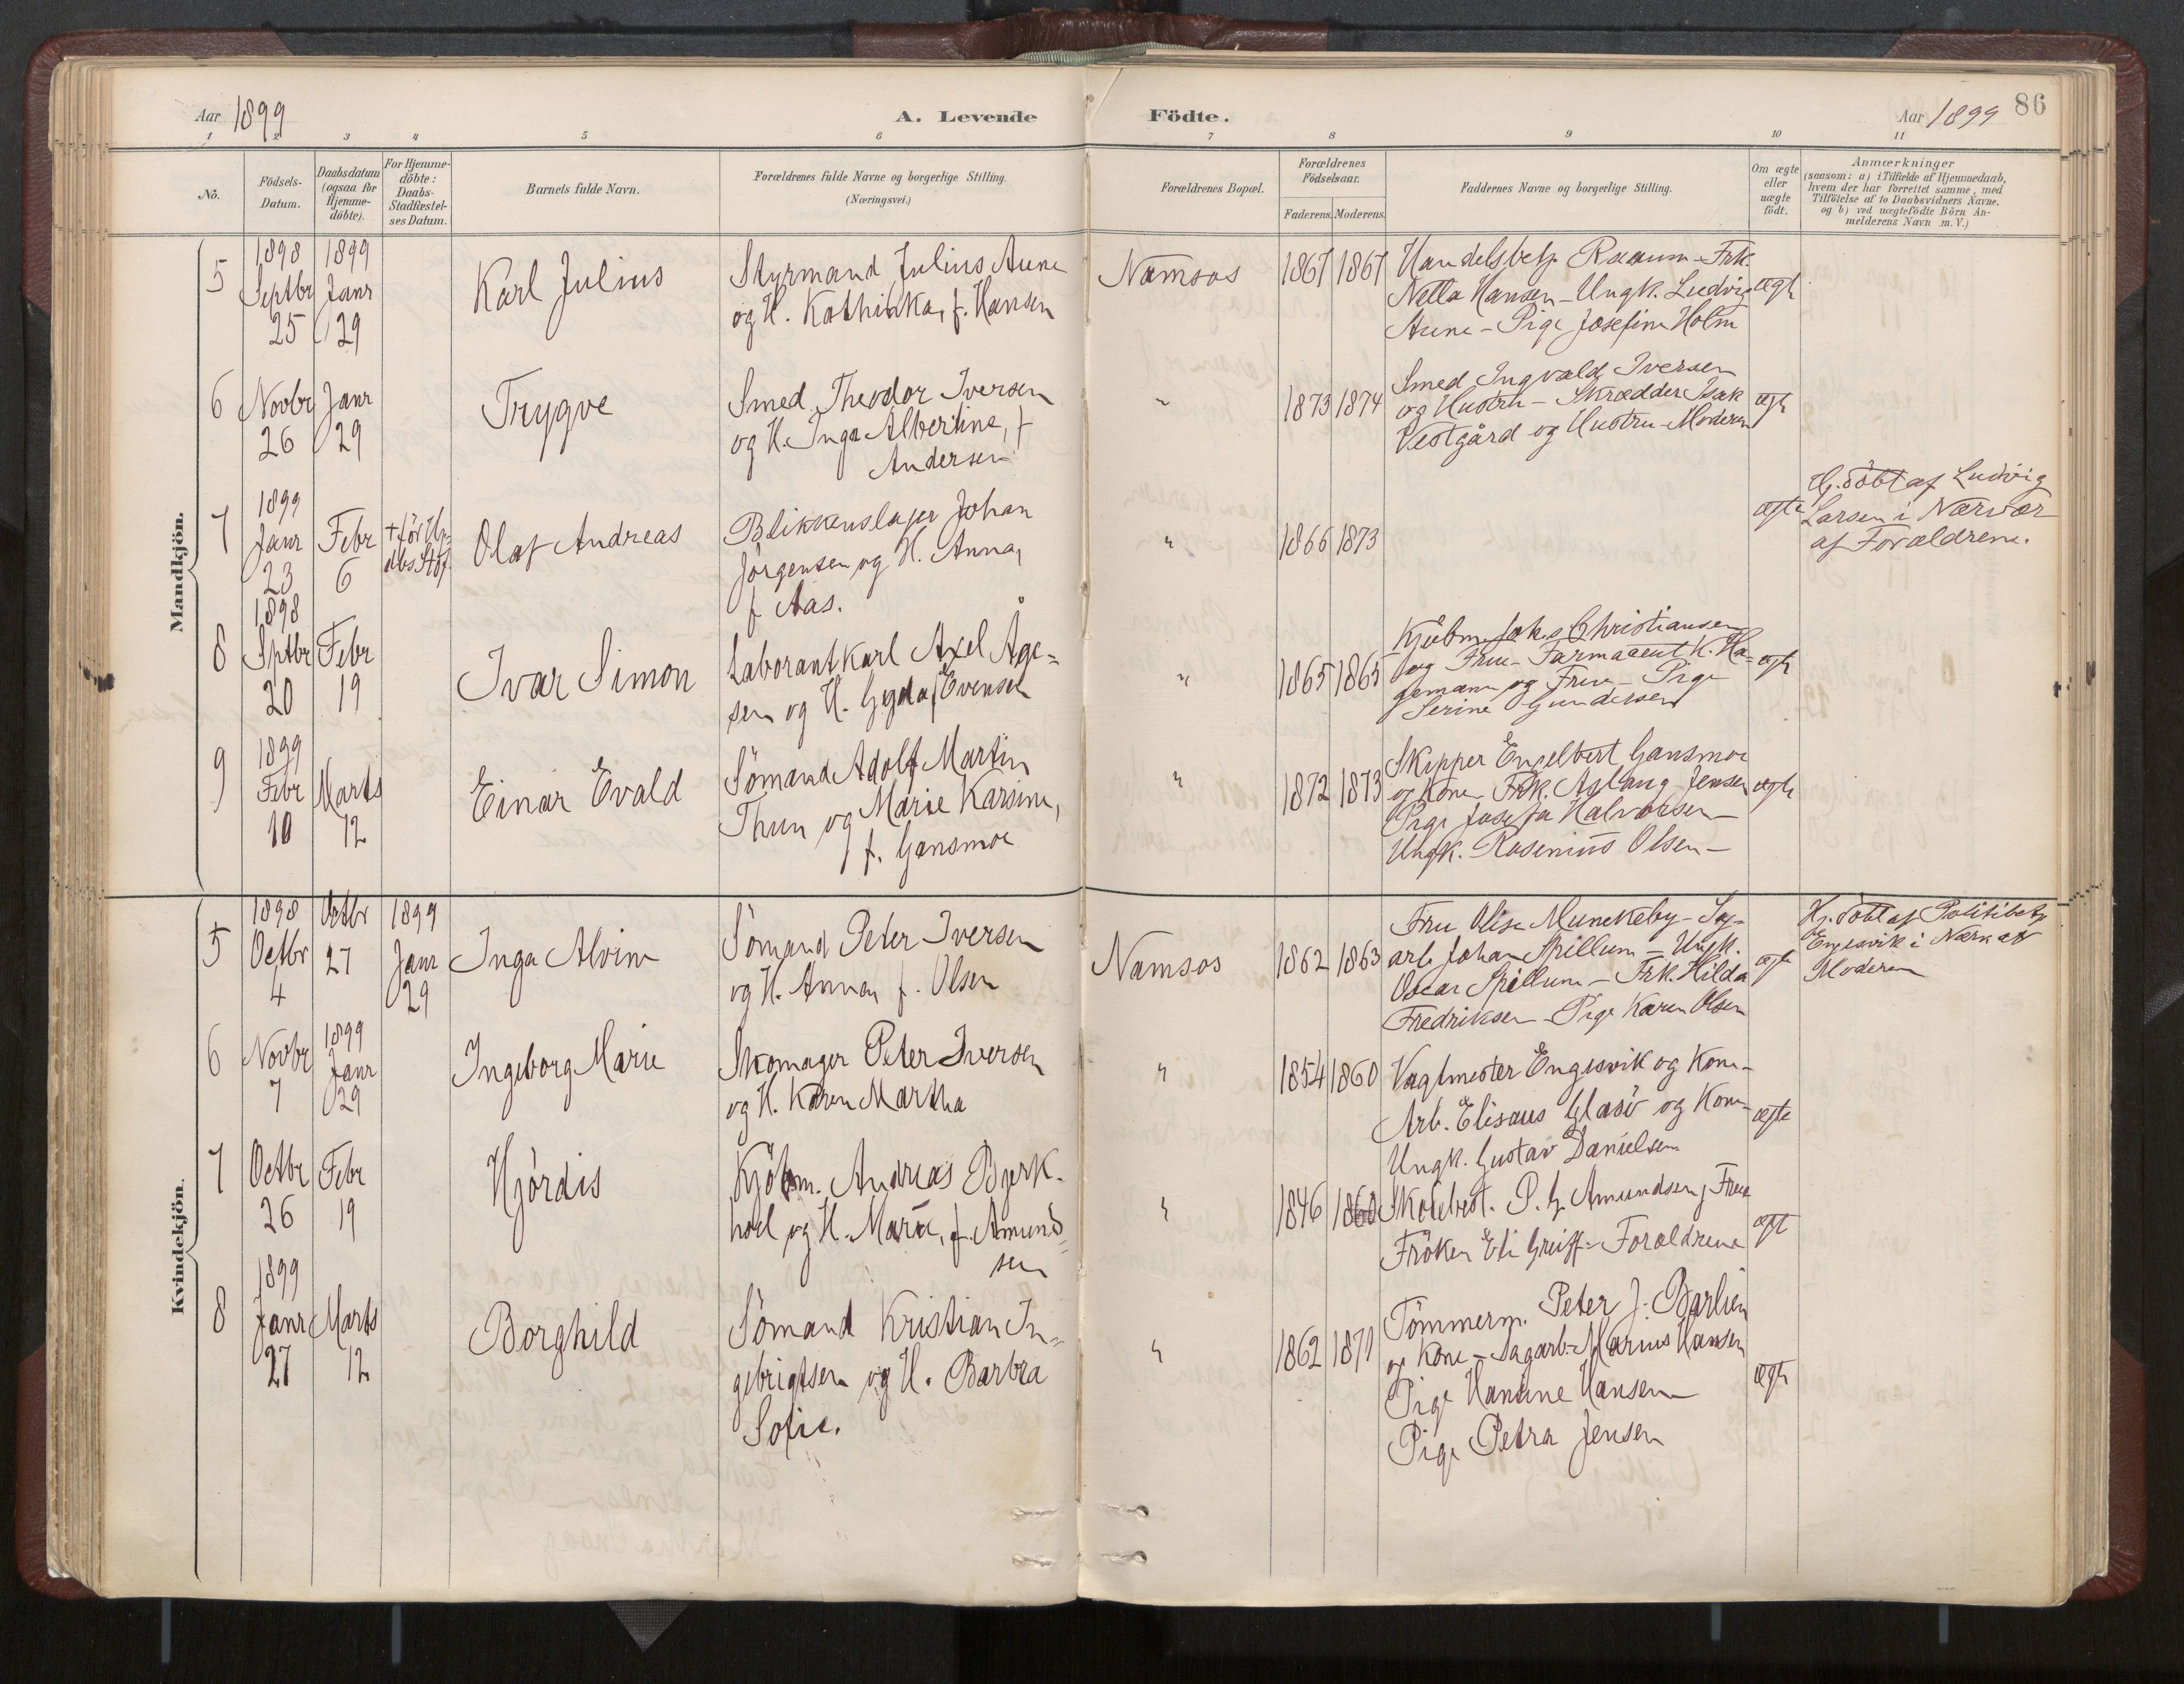 Aar 1899
A. Levende Födte.
Aar 1899 86
1 2 3 4 5 6 7 8 9 10 11
No.
Födsels-Datum.
Daabsdatum (ogsaa for Hjemme-döbte).
For Hjemme-döbte: Daabs-Stadfæstel-ses Datum.
Barnets fulde Navn.
Forældrenes fulde Navne og borgerlige Stilling.
(Næringsvei.)
Forældrenes Bopæl.
Forældrenes Födselsaar.
Faderens. Moderens.
Faddernes Navne og borgerlige Stilling.
Om ægte eller uægte födt.
Anmærkninger
(saasom: a) i Tilfælde af Hjemmedaab,
hvem der har forrettet samme, med
Tilföielse af to Daabsvidners Navne.
og b) ved uægtefödte Börn An-
melderens Navn m. V.)
Mandkjön.
5
1898 Septbr 25
1899 Janr 29
Karl Julius
Styrmand Julius Aune
og H. Kathinka, f. Hansen
Namsos
1867 1867
Handelsbetj. - Frk.
Nella Hansen - Ungk. Ludvig
Aune - Pige Josefine Holm
ægte
6
Novbr 26
Janr 29
Trygve
Smed Theodor Iversen
og H. Inga Albertine, f
Andersen
"
1873 1874
Smed Ingvald Iversen
og Hustru - Skrædder Isak
Vestgård og Hustru - Moderen
ægte
7
1899 Janr 23
Febr 6
+ för
Olaf Andreas
Blikkenslager Johan
Jörgensen og H. Anna,
f Aas.
"
1866 1873
ægte
Hj. döbt af Ludvig
Larsen i Nærvær
af Forældrene.
8
1898 Sptbr 20
Febr 19
Ivar Simon
Laborant Karl Axel Åge-
sen og H. Gyda, f Evensen
"
1865 1865
Kjöbm. Christiansen
og Frue - Farmaceut K. Ha-
gemann og Frue - Pige
Serine Gundersen
ægte
9
1899 Febr 10
Marts 12
Einar Evald
Sömand Adolf Martin
Thun og Marie Karsine,
f. Gansmoe
"
1872 1873
Skipper Engelbert Gansmoe
og Kone - Frk. Aslaug Jensen
Pige Josefa Halvorsen -
Ungk. Rasinius Olsen -
ægte
Kvindekjön.
5
1898 Octbr 4
Octbr 27
1899 Janr 29
Inga Alvine
Sömand Peter Iversen
og H. Anna, f. Olsen
Namsos
1862 1863
Fru Olise Munckeby - Sag-
arb Johan Spillum - Ungk.
Oscar Spillum - Frk. Hilda
Fredriksen - Pige Karen Olsen
ægte
Hj. döbt af Politibetj
Engesvik i Nærv af
Moderen
6
Novbr 7
1899 Janr 29
Ingeborg Marie
Skomager Peter Iversen
og H. Karen Martha
"
1854 1860
Vagtmester Engesvik og Kone -
Arb. Elisæus Glasö og Kone -
Ungk. Gustav Danielsen
ægte
7
Octbr 26
Febr 19
Hjördis
Kjöbm. Andreas Bjerk-
hoel og H. Marie, f. Amund-
sen
"
1846 1860
Skolebest. P. G. Amundsen, Frue
Fröken Eli Greiff - Forældrene
ægte
8
1899 Janr 27
Marts 12
Borghild
Sömand Kristian In-
gebrigtsen og H. Barbra
Sofie.
"
1862 1871
Tömmerm. Peter J. Barlien
og Kone - Sagarb. Marius Hansen
Pige Hansine Hansen
Pige Petra Jensen
ægte